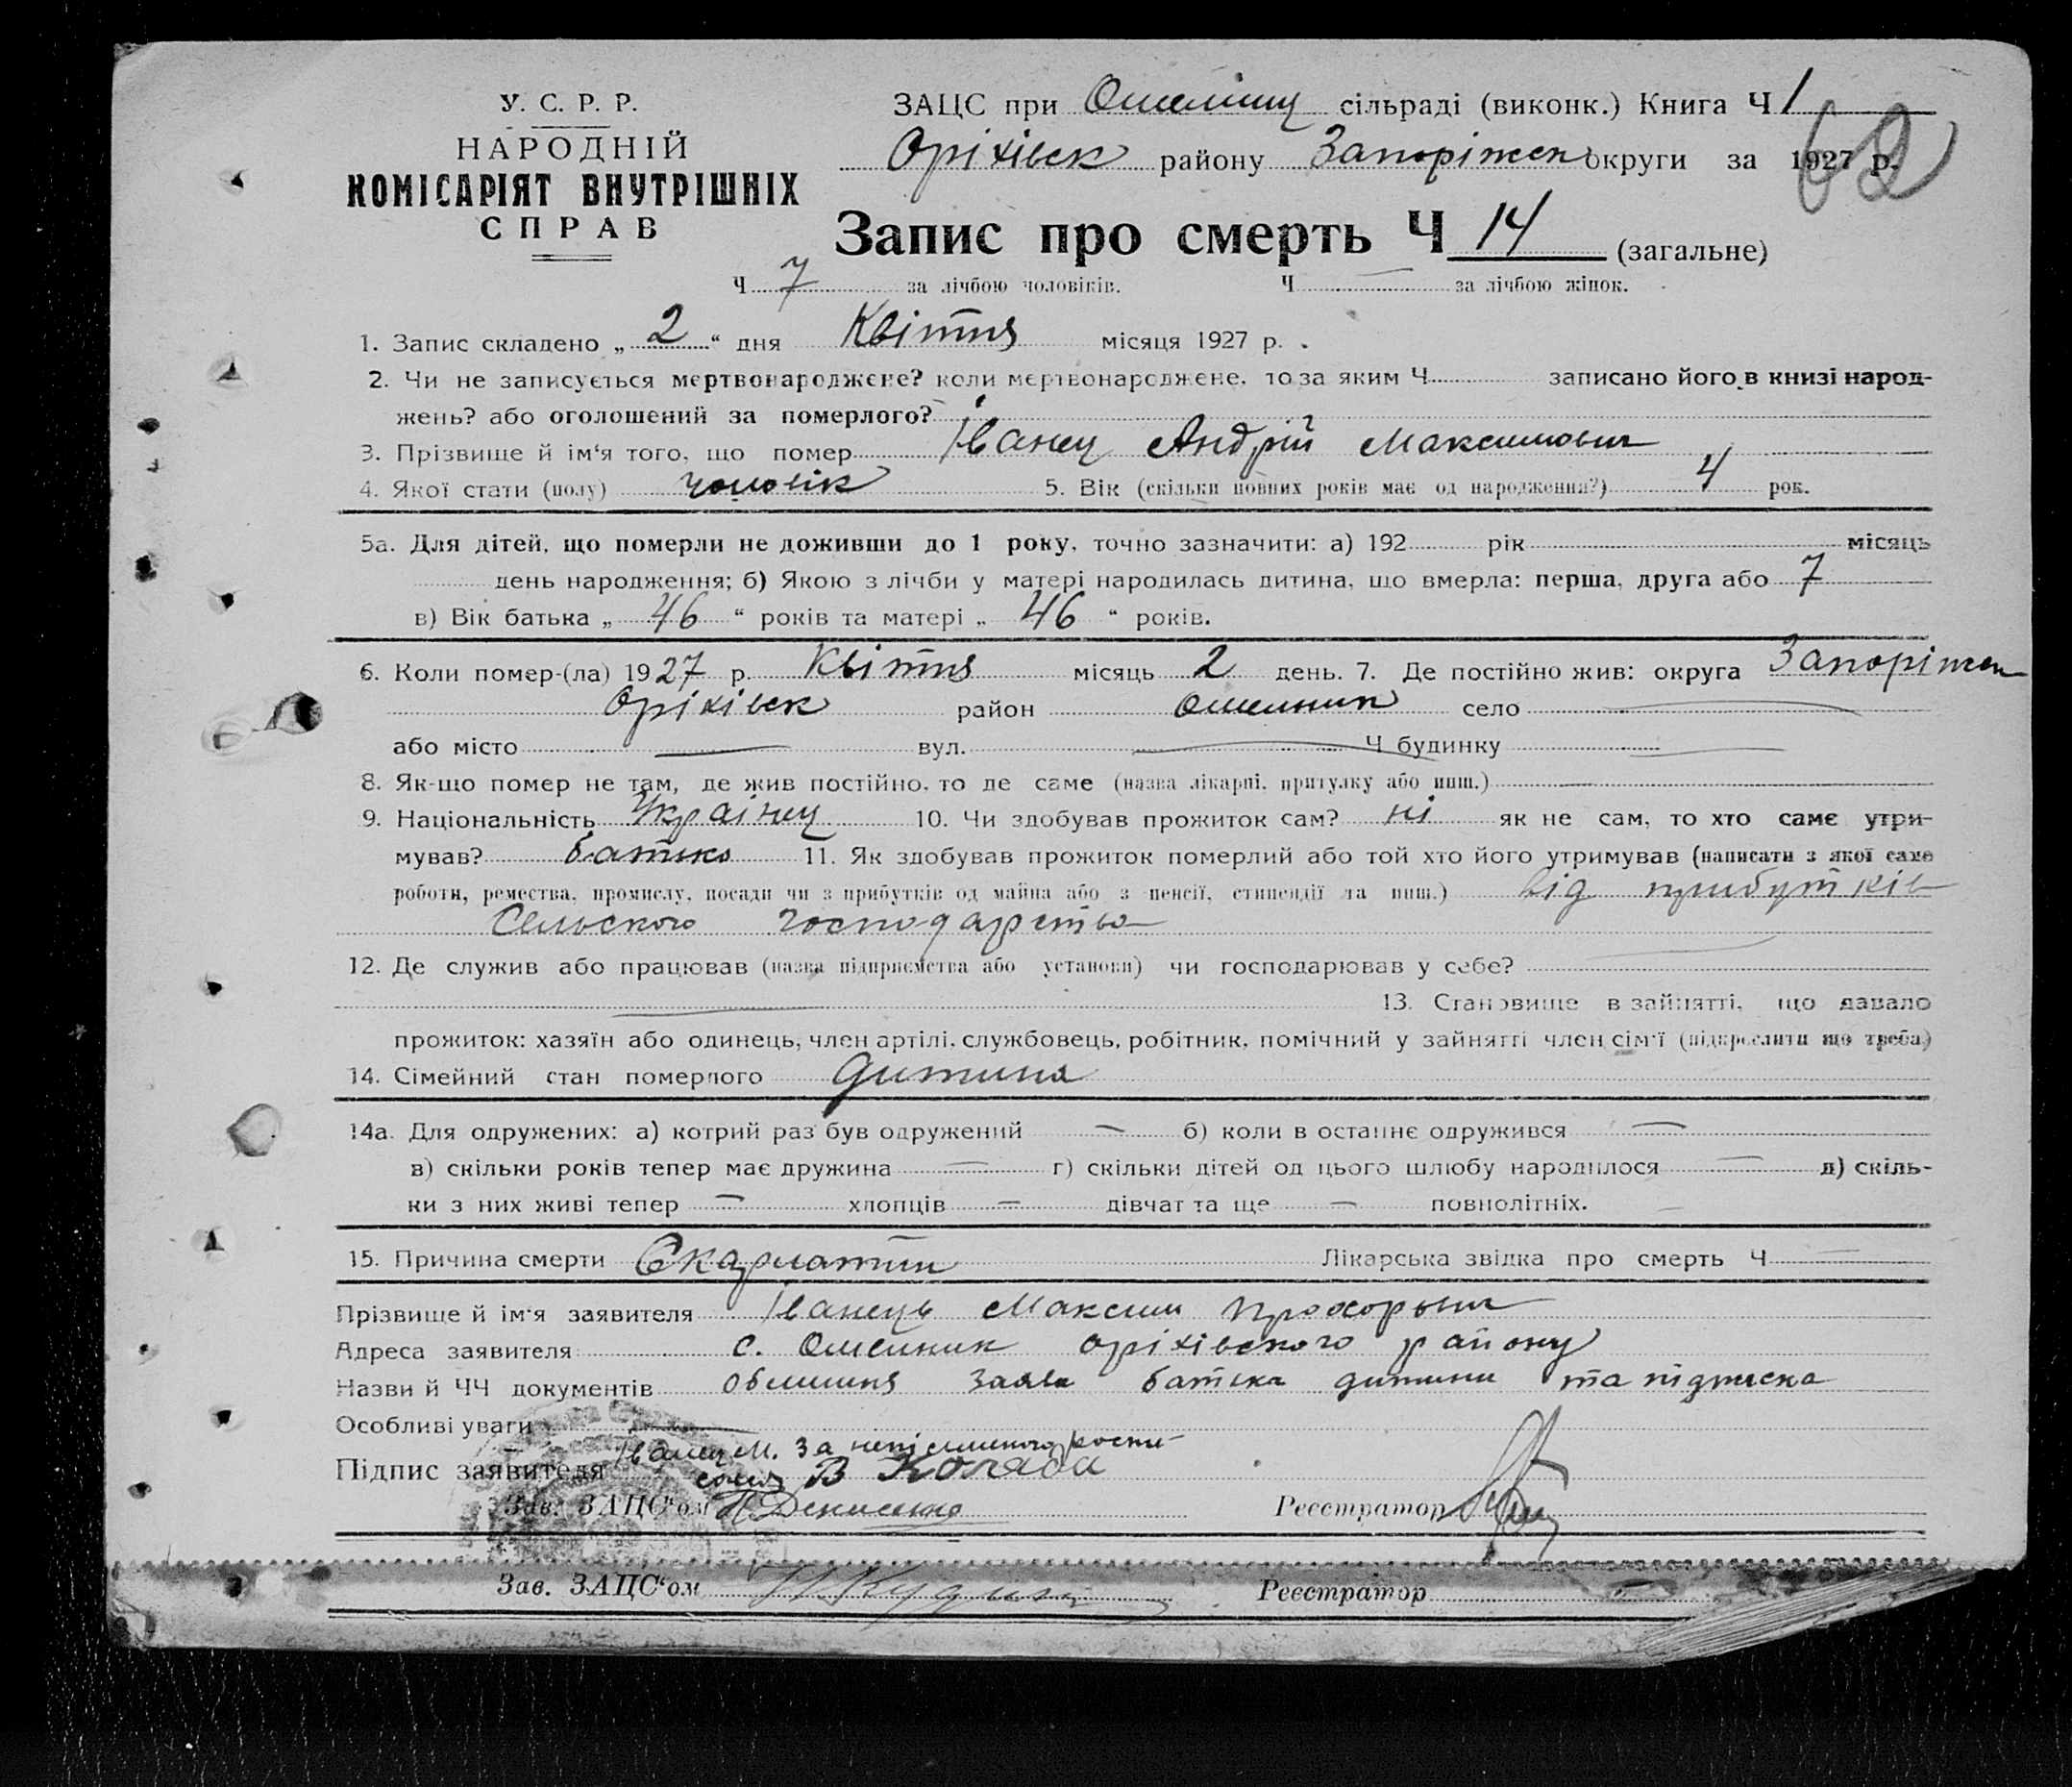 У. С. Р. Р.
НАРОДНІЙ
КОМІСАРІЯТ ВНУТРІШНІХ
СПРАВ
ЗАЦС при сільраді (виконк.) Книга Ч 1
62
Оріхівськ району Запоріжськ округи за 1927 р.
Запис про смерть Ч 14 (загальне)
Ч 7 за лічбою чоловіків. Ч — за лічбою жінок.
1. Запис складено „ 2 “ дня Квітня місяця 1927 р.
2. Чи не записується мертвонароджене? коли мертвонароджене, то за яким Ч записано його в книзі народ-
жень? або оголошений за померлого?
3. Прізвище й ім‘я того, що помер Іванец Андрій Максимович
4. Якої стати (полу) чоловік 5. Вік (скільки повних років має од народження?) 4 рок.
5а. Для дітей, що померли не доживши до 1 року, точно зазначити: а) 192 рік місяць
день народження; б) Якою з лічби у матері народилась дитина, що вмерла: перша, друга або 7
в) Вік батька „ 46 “ років та матері „ 46 “ років.
6. Коли помер-(ла) 1927 р. Квітня місяць 2 день. 7. Де постійно жив: округа Запоріжськ
Оріхівськ район Омельник село —
або місто — вул. — Ч будинку —
8. Як-що помер не там, де жив постійно, то де саме (назва лікарні, притулку або инш.) —
9. Національність Українец 10. Чи здобував прожиток сам? ні як не сам, то хто саме утри-
мував? батько 11. Як здобував прожиток померлий або той хто його утримував (написати з якої саме
роботи, ремества, промислу, посади чи з прибутків од майна або з пенсії, стипендії та инш.) від прибутків
Сельского господарства
12. Де служив або працював (назва підприємства або установи) чи господарював у себе? —
— 13. Становище в зайнятті, що давало
прожиток: хазяїн або одинець, член артілі, службовець, робітник, помічний у зайнятті член сім‘ї (підкреслити що треба)
14. Сімейний стан померлого дитина
14а. Для одружених: а) котрий раз був одружений — б) коли в останнє одружився —
в) скільки років тепер має дружина — г) скільки дітей од цього шлюбу народилося — д) скіль-
ки з них живі тепер — хлопців — дівчат та ще — повнолітніх. —
15. Причина смерти Скарлатин Лікарська звідка про смерть Ч —
Прізвище й ім‘я заявителя Іванець Максим Прохорович
Адреса заявителя с. Омельник Оріхівского району
Назви й ЧЧ документів заява батька дитини та підписка
Особливі уваги —
Іванец М. За неписьменого роспи-
Підпис заявителя В Коляда
Зав. ЗАЦС‘ом Денисенко Реєстратор
Зав. ЗАЦС‘ом Реєстратор —